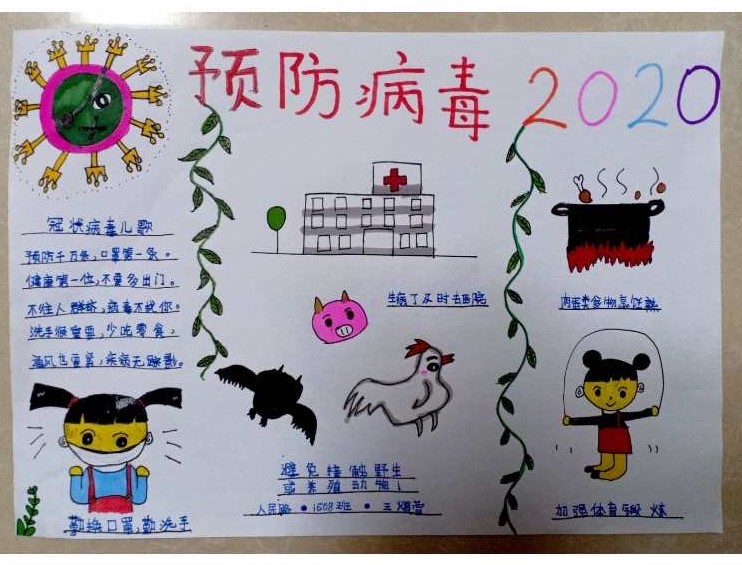 预防病毒 2020
冠状病毒儿歌
预防千万条，口罩第一条。
健康第一位，不要多出门。
不往人群挤，病毒不扰你。
洗手很重要，少吃零食，
通风也重要，疾病无踪影。
勤换口罩，勤洗手
生病了及时去医院
避免接触野生
或养殖动物！
人民路 • 1608班 •
肉蛋类食物烹饪熟
加强体育锻炼